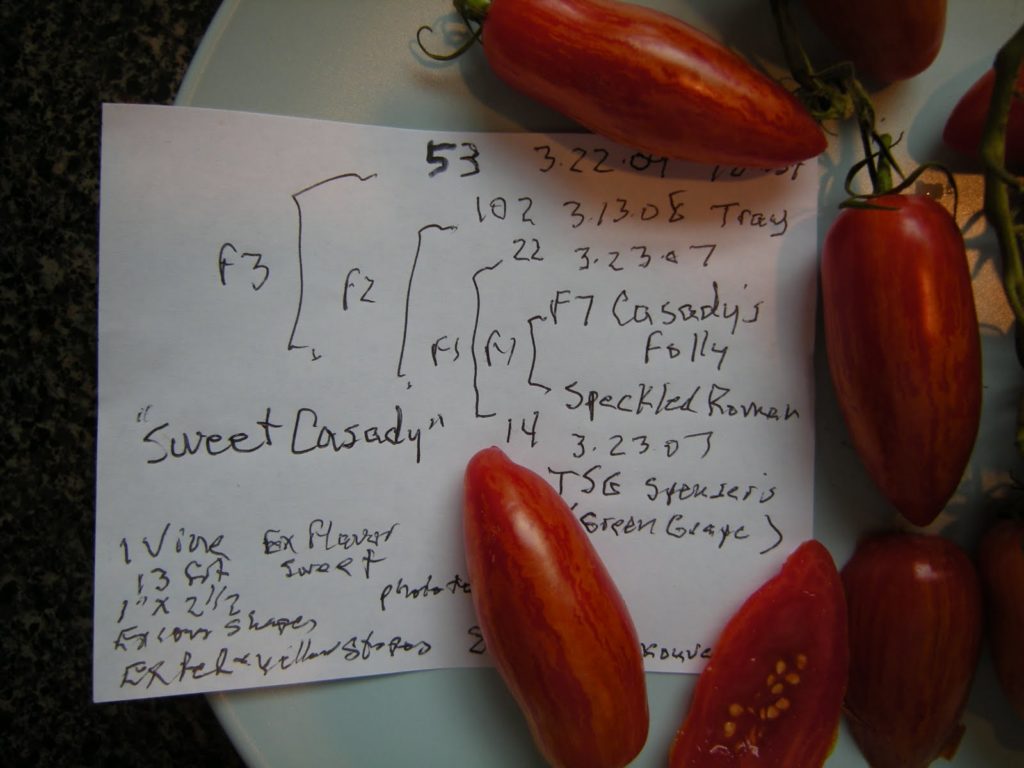 53 3.22.09
102 3.13.08 Tray
22 3.23.07
F3
F2
F1
F1
F7 Casady's
Folly
Speckled Roman
"Sweet Casady"
14 3.23.07
TSG
(Green Grape)
1 Vine Ex flavor
13 sweet
1" x 2 1/2
Ex shapes
Ex red + yellow stripes